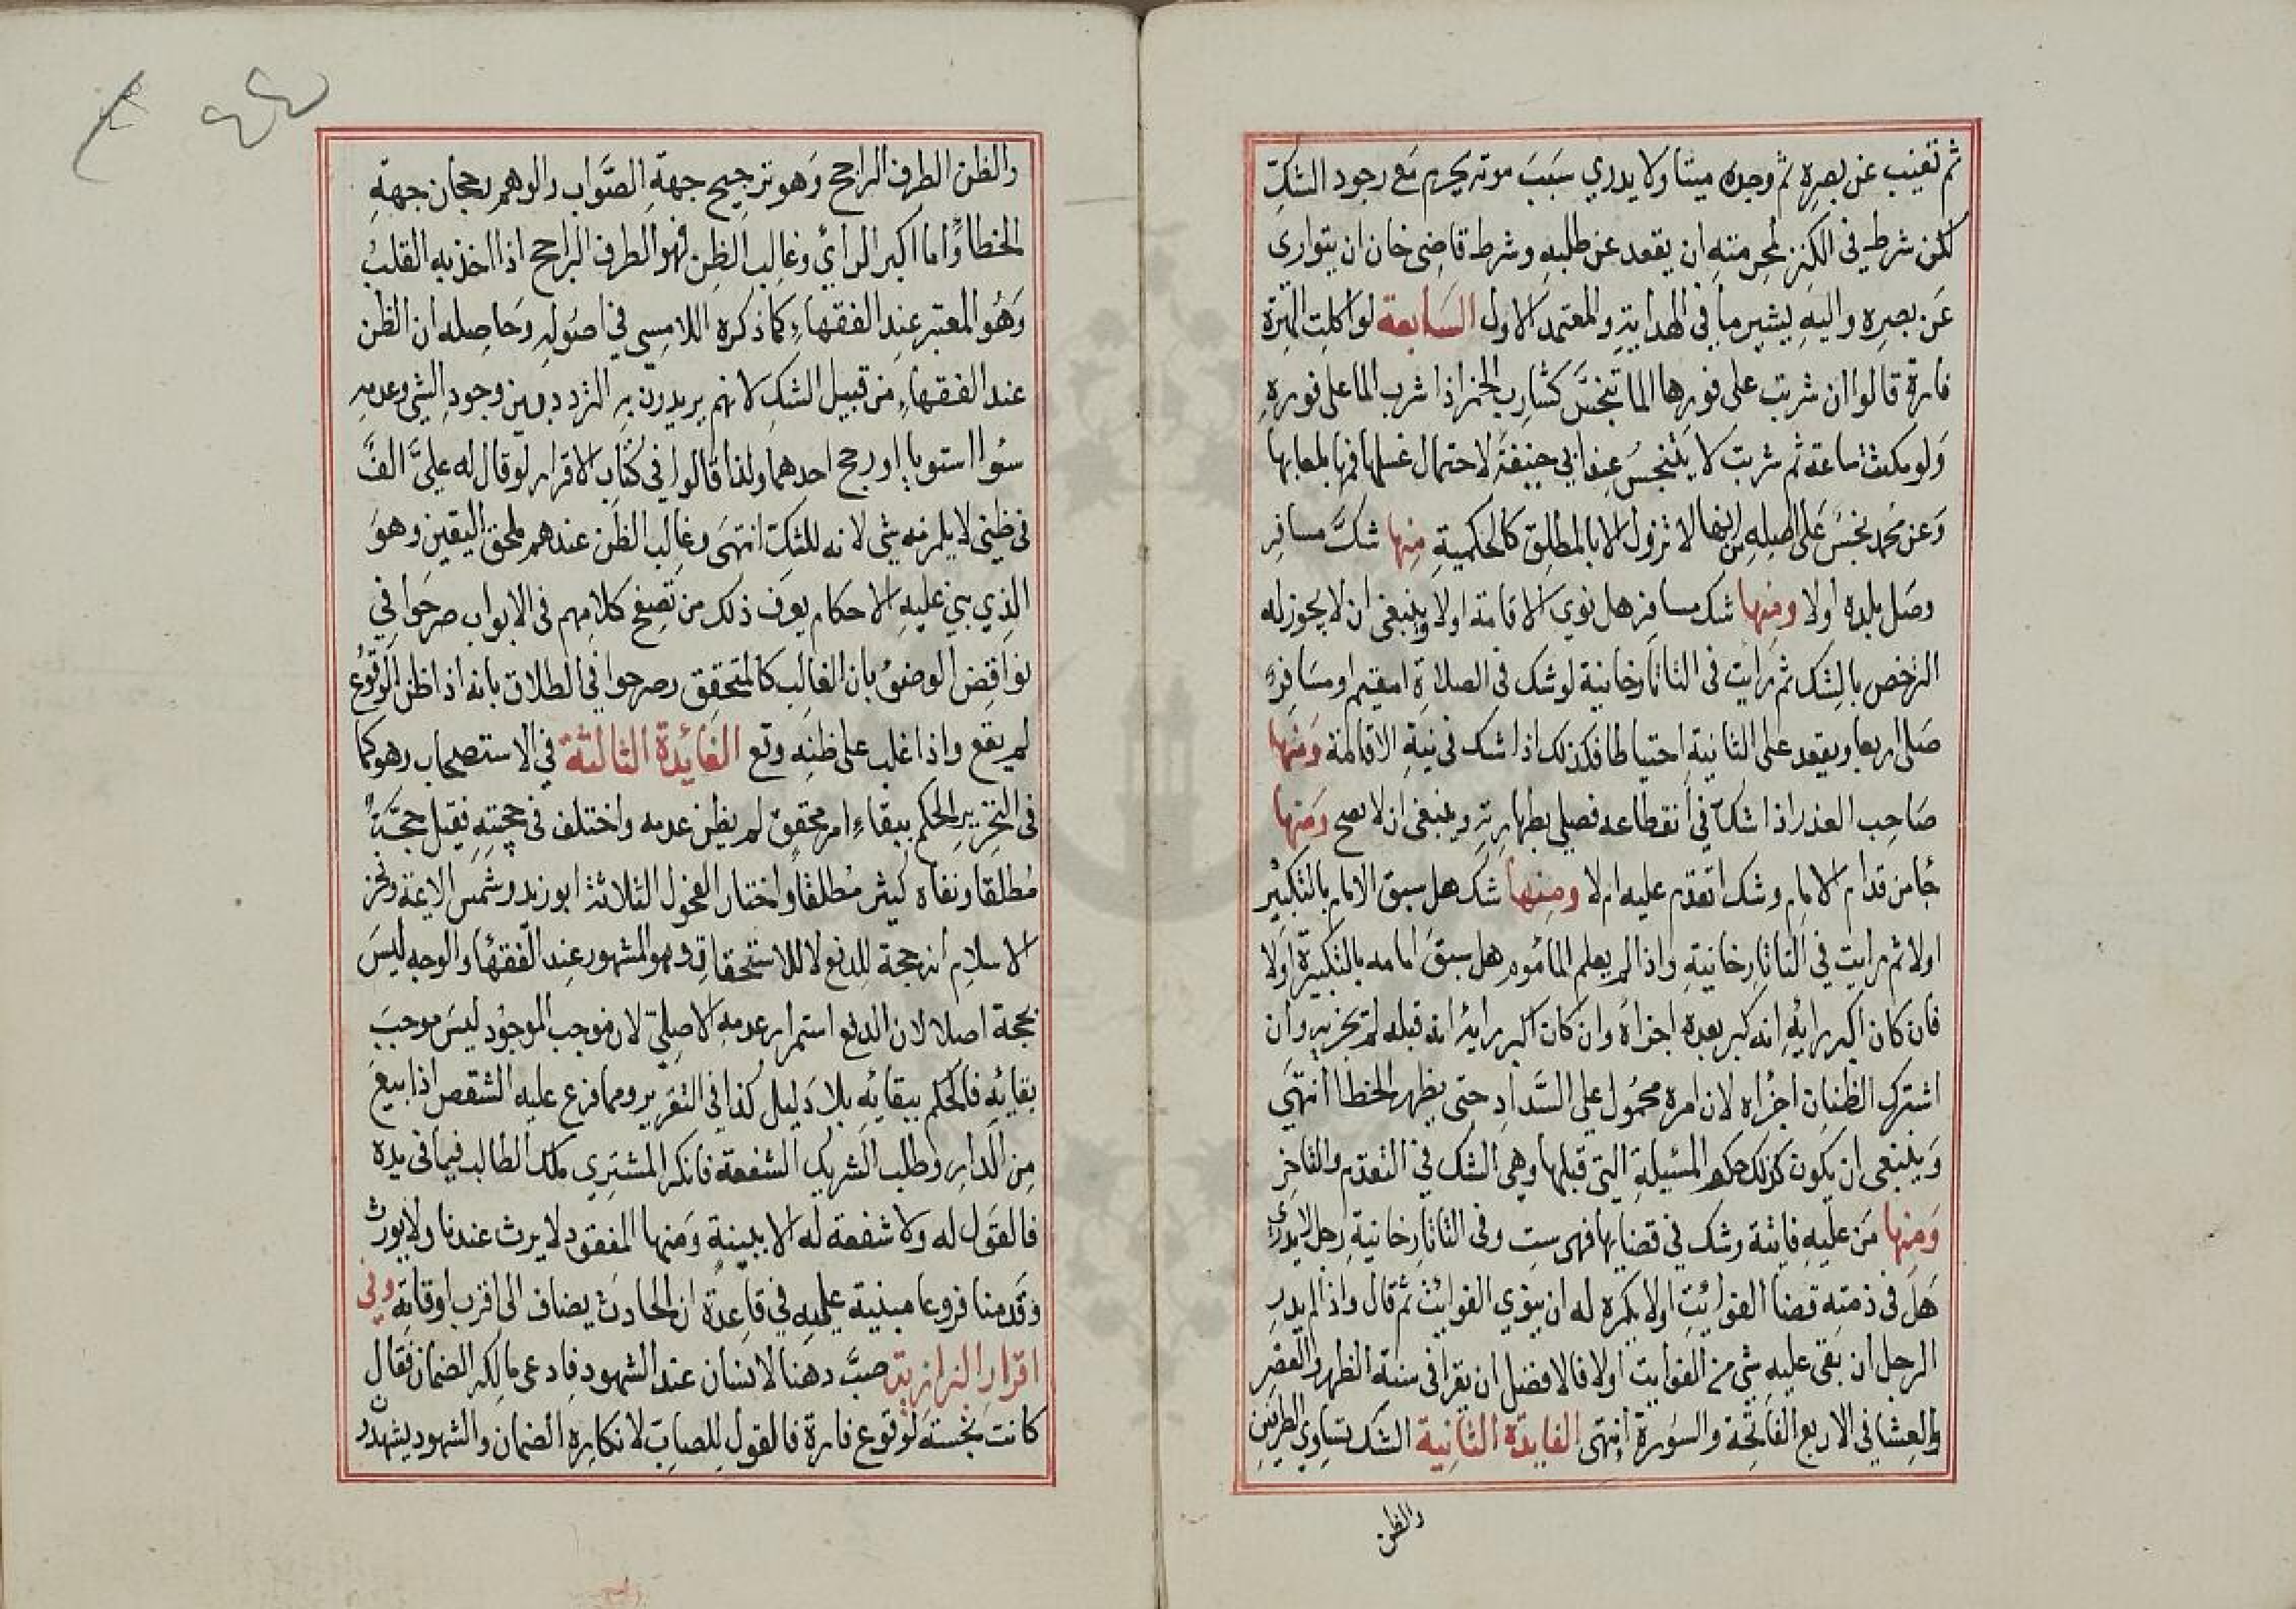 ثم تغيب عن بصره ثم وجده ميتا ولا يدري سبب موته يحرم مع وجود الشك
لكن شرط في الكنز لحرمته ان يقعد عن طلبه وشرط قاضي خان ان يتوارى
عن بصره واليه يشير ما في الهداية والمعتمد الاول السابعة لو اكلت الهرة
فارة قالوا ان شربت على فورها الما تنجس كشارب الخمر اذا شرب الما على فوره
ولو مكثت ساعة ثم شربت لا يتنجس عند ابي حنيفة لاحتمال غسلها فمها بلعابها
وعن محمد نجس على اصله من انها لا تزول الا بالمطلق كالحكمية منها شك مسافر
وصل بلده اولا ومنها شك مسافر هل نوي الاقامة اولا وينبغي ان لا يجوز له
الترخص بالشك ثم رايت في التاتارخانية لو شك في الصلاة امقيم او مسافر
صلى اربعا ويقعد على الثانية احتياطا فكذلك اذا شك في نية الاقامة ومنها
صاحب العذر اذا شك في انقطاعه فصلي بطهارته وينبغي ان لا يصح ومنها
جا من قدام الامام وشك اتقدم عليه ام لا ومنها شك هل سبق الامام بالتكبير
اولا ثم رايت في التاتارخانية واذا لم يعلم الماموم هل سبق امامه بالتكبيرة اولا
فان كان اكبر رايه انه كبر بعده اجزاه وان كان اكبر رايه انه قبله لم تجزيه وان
اشترك الظنان اجزاه لان امره محمول على السداد حتى يظهر الخطا انتهى
وينبغي ان يكون كذلك حكم المسيلة التي قبلها وهي الشك في التقدم والتاخر
ومنها من عليه فايتة وشك في قضايها فهي ست وفي التاتارخانية رجل لا يدري
هل في ذمته قضا الفوائت اولا يكره له ان ينوي الفوائت ثم قال واذا لم يدر
الرجل ان بقى عليه شي من الفوايت اولا فالافضل ان يقرا في سنة الظهر والعصر
والعشا في الاربع الفاتحة والسورة انتهى الفايدة الثانية الشك تساوي الطرفين
والظن
والظن الطرف الراجح وهو ترجيح جهة الصواب والوهم رجحان جهة
الخطا واما اكبر الرائي وغالب الظن فهو الطرف الراجح اذا اخذ به القلب
وهو المعتبر عند الفقهاء كما ذكره اللامسي في اصوله وحاصله ان الظن
عند الفقهاء من قبيل الشك لانهم يريدون به التردد بين وجود الشي وعدمه
سوا استويا او رجح احدهما ولذا قالوا في كتاب الاقرار لو قال له علي الف
في ظني لا يلزمه شي لانه للشك انتهى وغالب الظن عندهم ملحق اليقين وهو
الذي يبني عليه الاحكام يعرف ذلك من تصفح كلامهم في الابواب صرحوا في
نواقض الوضوء بان الغالب كالمتحقق وصرحوا في الطلاق بانه اذا ظن الوقوع
لم يقع واذا غلب على ظنه وقع الفائدة الثالثة في الاستصحاب وهو كما
في التحرير الحكم ببقاء امر محقق لم يظن عدمه واختلف في حجيته فقيل حجة
مطلقا ونفاه كثير مطلقا واختار الفحول الثلاثة ابو زيد وشمس الايمة وفخر
الاسلام انه حجة للدفع لا للاستحقاق وهو المشهور عند الفقها والوجه ليس
بحجة اصلا لان الدفع استمرار عدمه الاصلي لان موجب الوجود ليس موجب
بقايه فالحكم ببقايه بلا دليل كذا في التقرير ومما فرع عليه الشقص اذا بيع
من الدار وطلب الشريك الشفعة فانكر المشتري ملك الطالب فيما في يده
فالقول له ولا شفعة له الا ببينة ومنها المفقود لا يرث عندنا ولا يورث
وقدمنا فروعا مبنية عليه في قاعدة ان الحادث يضاف الى اقرب اوقاته وفي
اقرار البزازية صب دهنا لانسان عند الشهود فادعى مالكه الضمان فقال
كانت نجسة لوقوع فارة فالقول للصاب لانكاره الضمان والشهود يشهدون